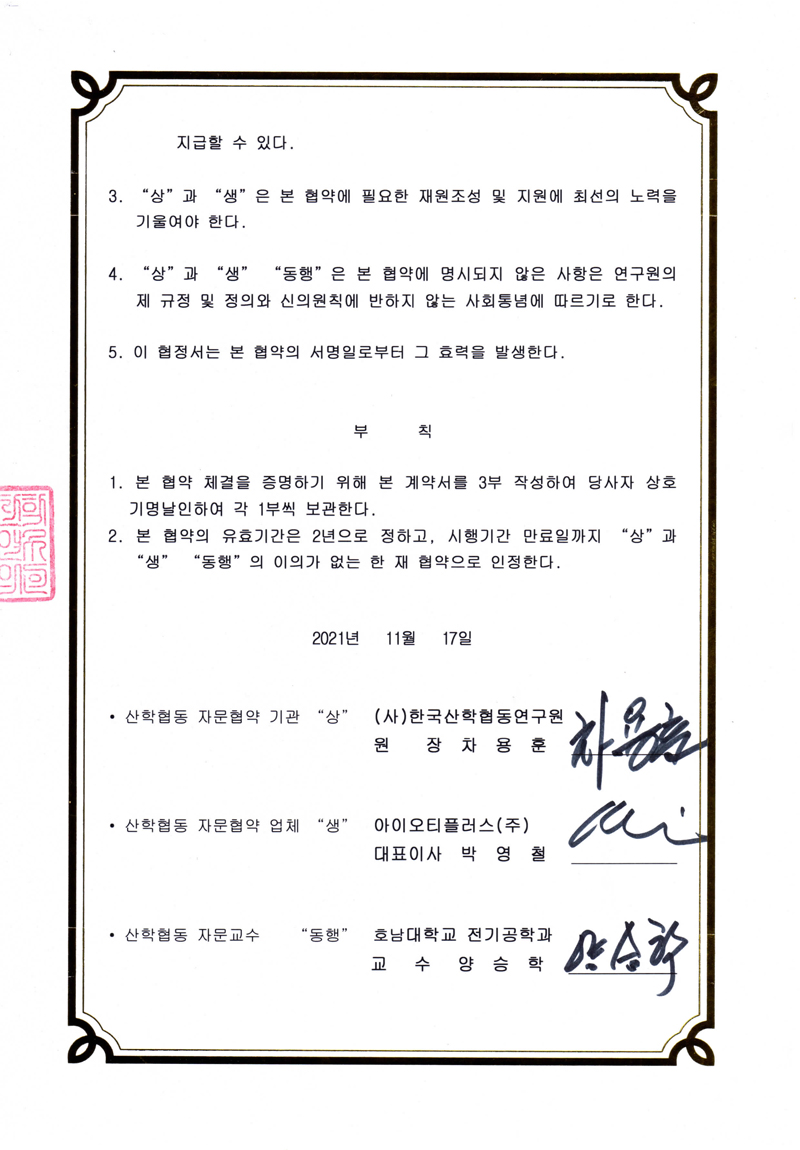 지급할 수 있다.
3. “상”과 “생”은 본 협약에 필요한 재원조성 및 지원에 최선의 노력을
기울여야 한다.
4. “상”과 “생” “동행”은 본 협약에 명시되지 않은 사항은 연구원의
제 규정 및 정의와 신의원칙에 반하지 않는 사회통념에 따르기로 한다.
5. 이 협정서는 본 협약의 서명일로부터 그 효력을 발생한다.
부 칙
1. 본 협약 체결을 증명하기 위해 본 계약서를 3부 작성하여 당사자 상호
기명날인하여 각 1부씩 보관한다.
2. 본 협약의 유효기간은 2년으로 정하고, 시행기간 만료일까지 “상”과
“생” “동행”의 이의가 없는 한 재 협약으로 인정한다.
2021년 11월 17일
• 산학협동 자문협약 기관 “상” (사)한국산학협동연구원
원 장 차 용 훈 차용훈
• 산학협동 자문협약 업체 “생” 아이오티플러스(주)
대표이사 박 영 철
• 산학협동 자문교수 “동행” 호남대학교 전기공학과
교 수 양 승 학 양승학